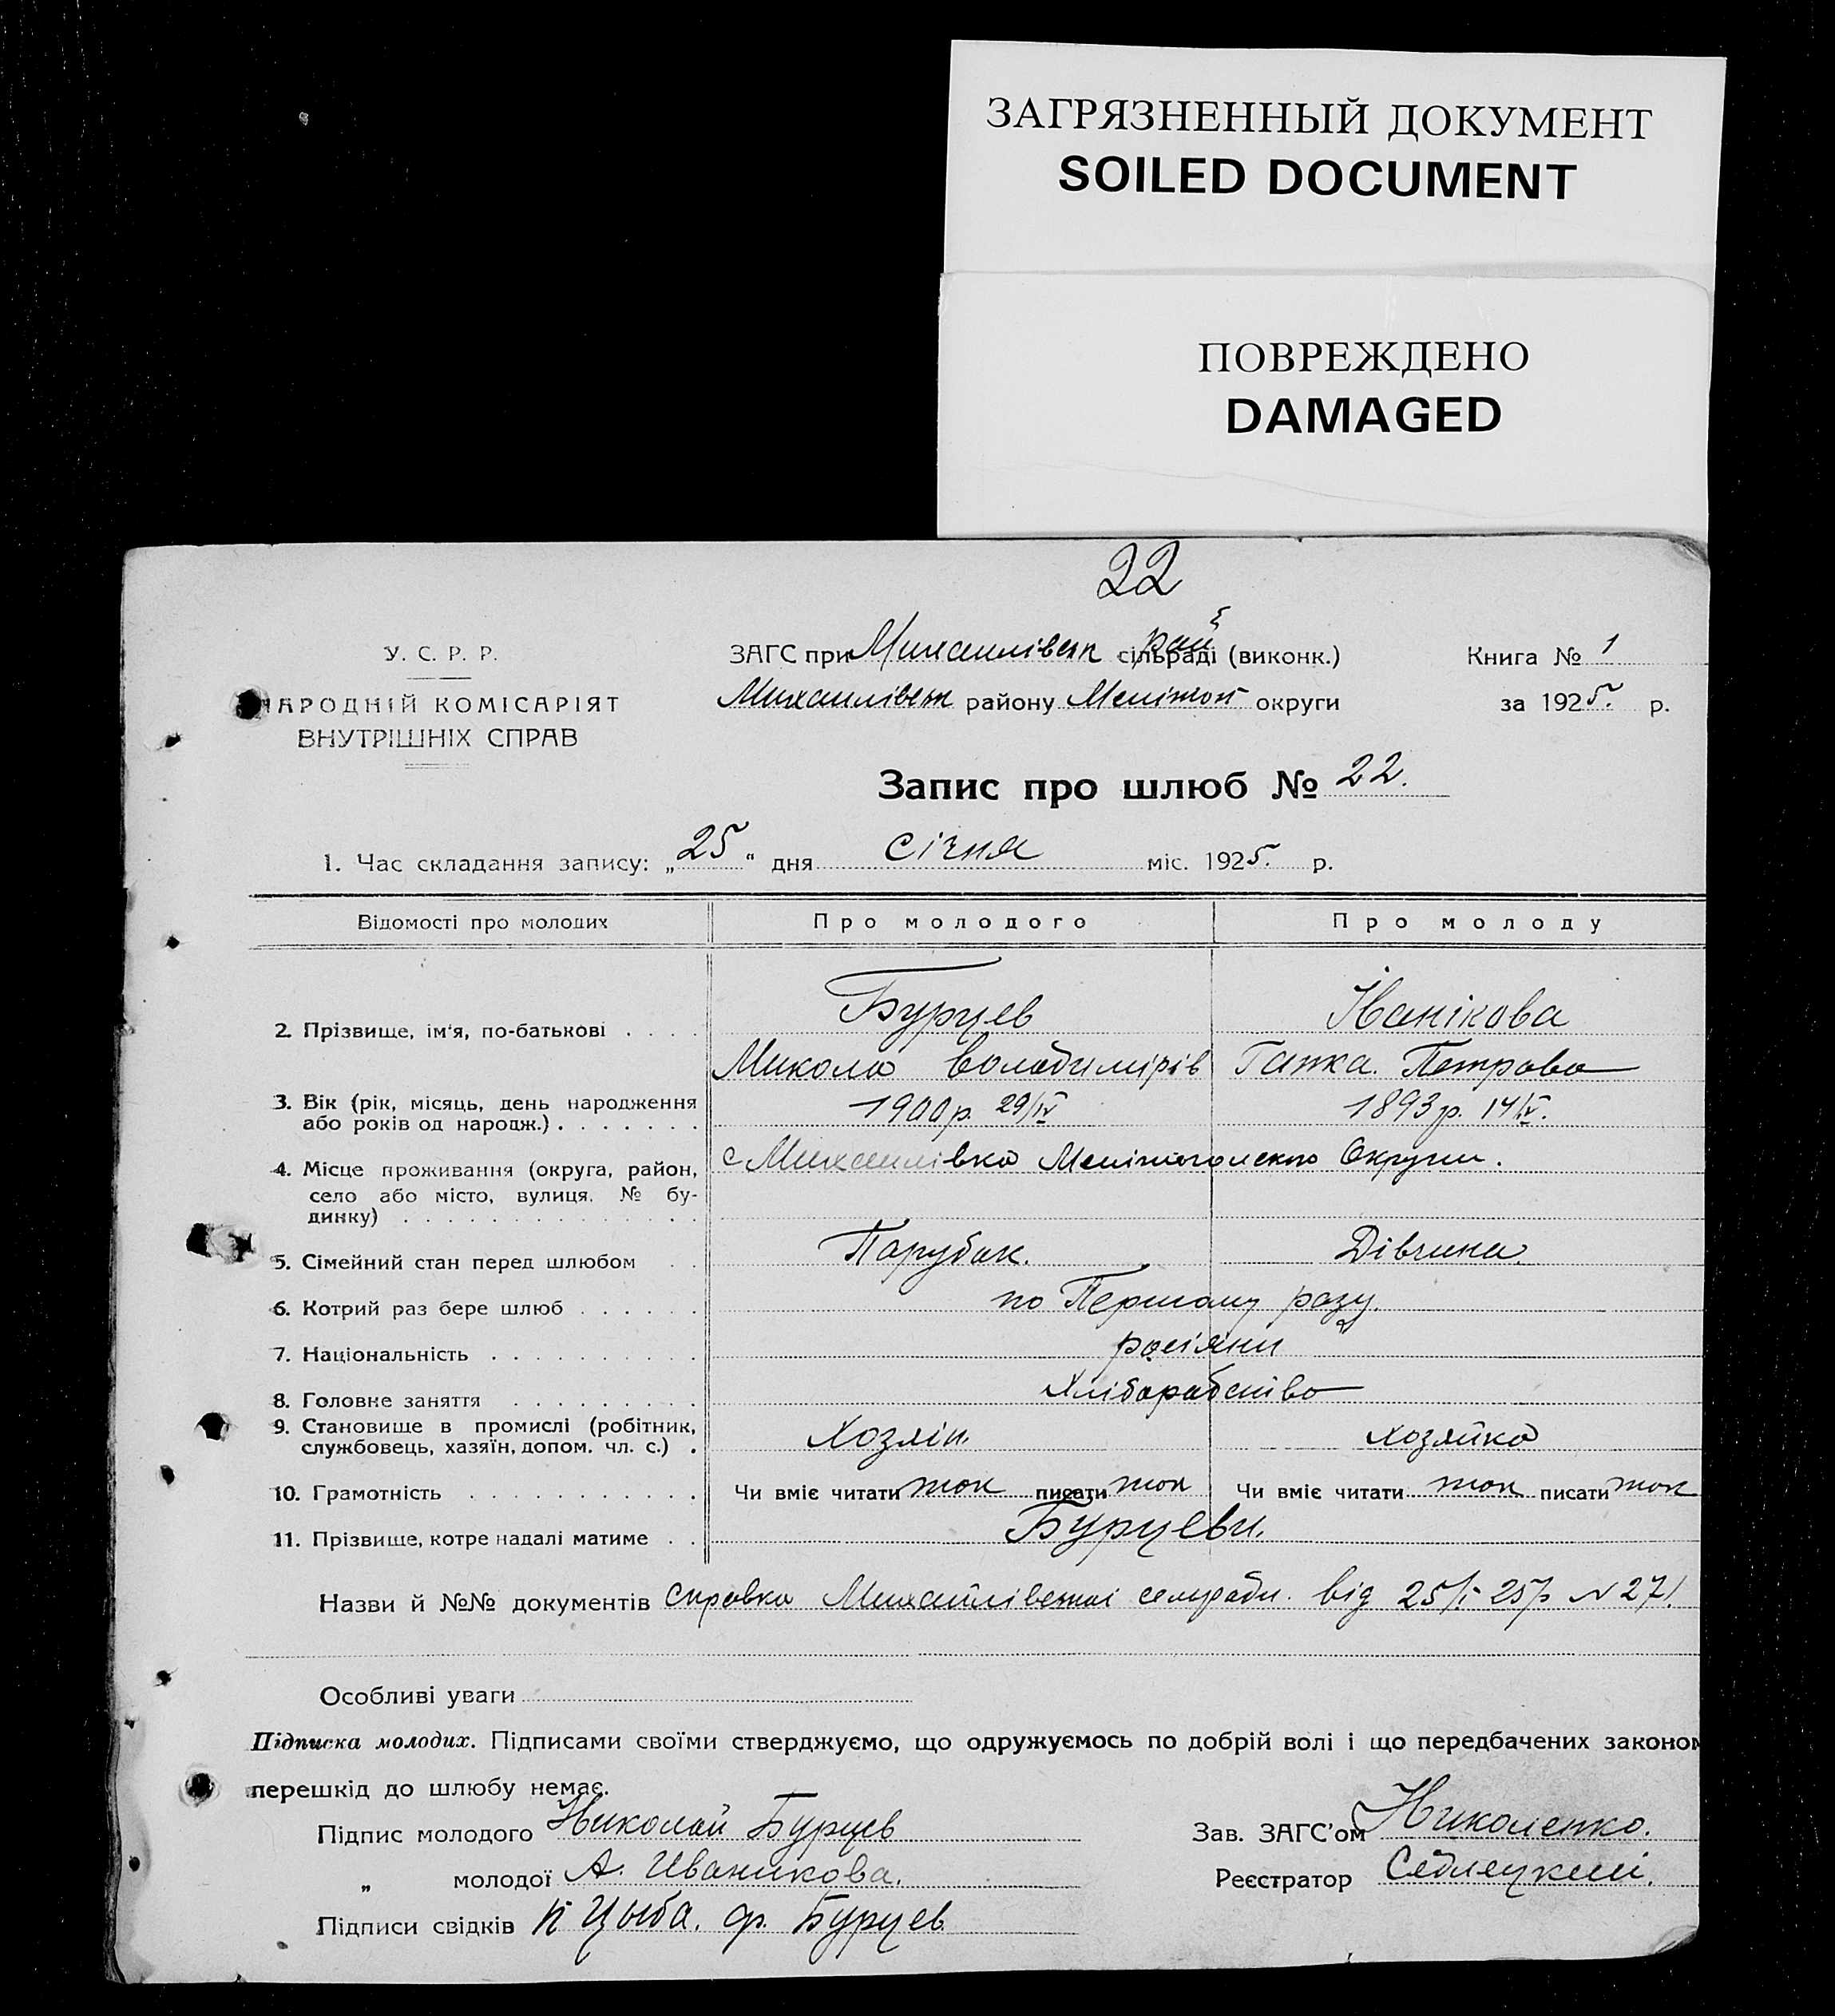 ЗАГРЯЗНЕННЫЙ ДОКУМЕНТ
SOILED DOCUMENT
ПОВРЕЖДЕНО
DAMAGED
22
У. С. Р. Р.
АРОДНІЙ КОМІСАРІЯТ
ВНУТРІШНІХ СПРАВ
ЗАГС при Михайлівськ рай сільраді (виконк.)
Михайлівськ району Мелітоп округи
Книга № 1
за 1925. р.
Запис про шлюб № 22.
1. Час складання запису: „25“ дня січня міс. 1925. р.
Відомості про молодих Про молодого Про молоду
2. Прізвище, ім'я, по-батькові . . . . Бурцев Іванікова
Микола Володимірів Ганка. Петрова
3. Вік (рік, місяць, день народження або років од народж.) . . . . . . . 1900 р. 29/IV 1893 р. 14/IV.
4. Місце проживання (округа, район, село або місто, вулиця. № будинку) . . . . . с Михаилівка Мелітопольско Округи.
5. Сімейний стан перед шлюбом . . Парубак. Дівчина.
6. Котрий раз бере шлюб . . . . . . по Першому разу.
7. Національність . . . . . . . . . . росіяни
8. Головне заняття . . . . . . . . . Хліборобство
9. Становище в промислі (робітник, службовець, хазяїн, допом. чл. с.) . Хозяін. хозяйка
10. Грамотність . . . . . . . . . . . Чи вміє читати так писати так Чи вміє читати так писати так
11. Прізвище, котре надалі матиме . . Бурцеви.
Назви й №№ документів справка Михайлівської сельради. від 25/I-25р N 271.
Особливі уваги
Підписка молодих. Підписами своїми стверджуємо, що одружуємось по добрій волі і що передбачених законом
перешкід до шлюбу немає.
Підпис молодого Николай Бурцев
Зав. ЗАГС'ом Николенко.
„ молодої А. Иваникова.
Реєстратор Седлецкий.
Підписи свідків К Цыба. Ф. Бурцев